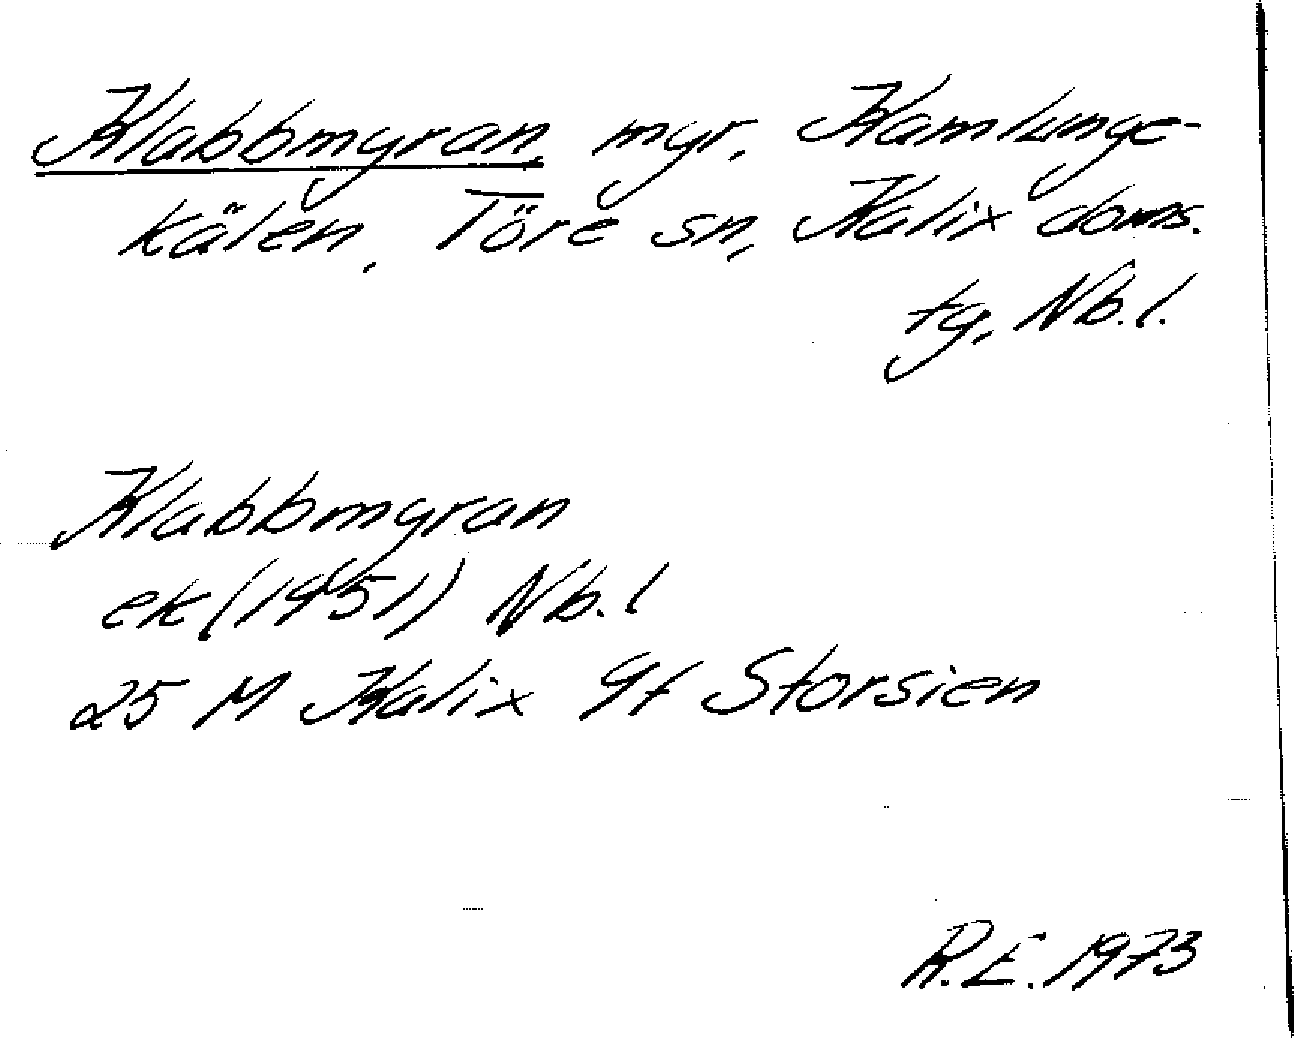 Klabbmyran, myr, Kamlunge-
kölen, Töre sn, Kalix doms.
tg, Nb.l.
Klabbmyran
ek (1951) Nb.l
25 M Kalix 9f Storsien
R.E. 1973